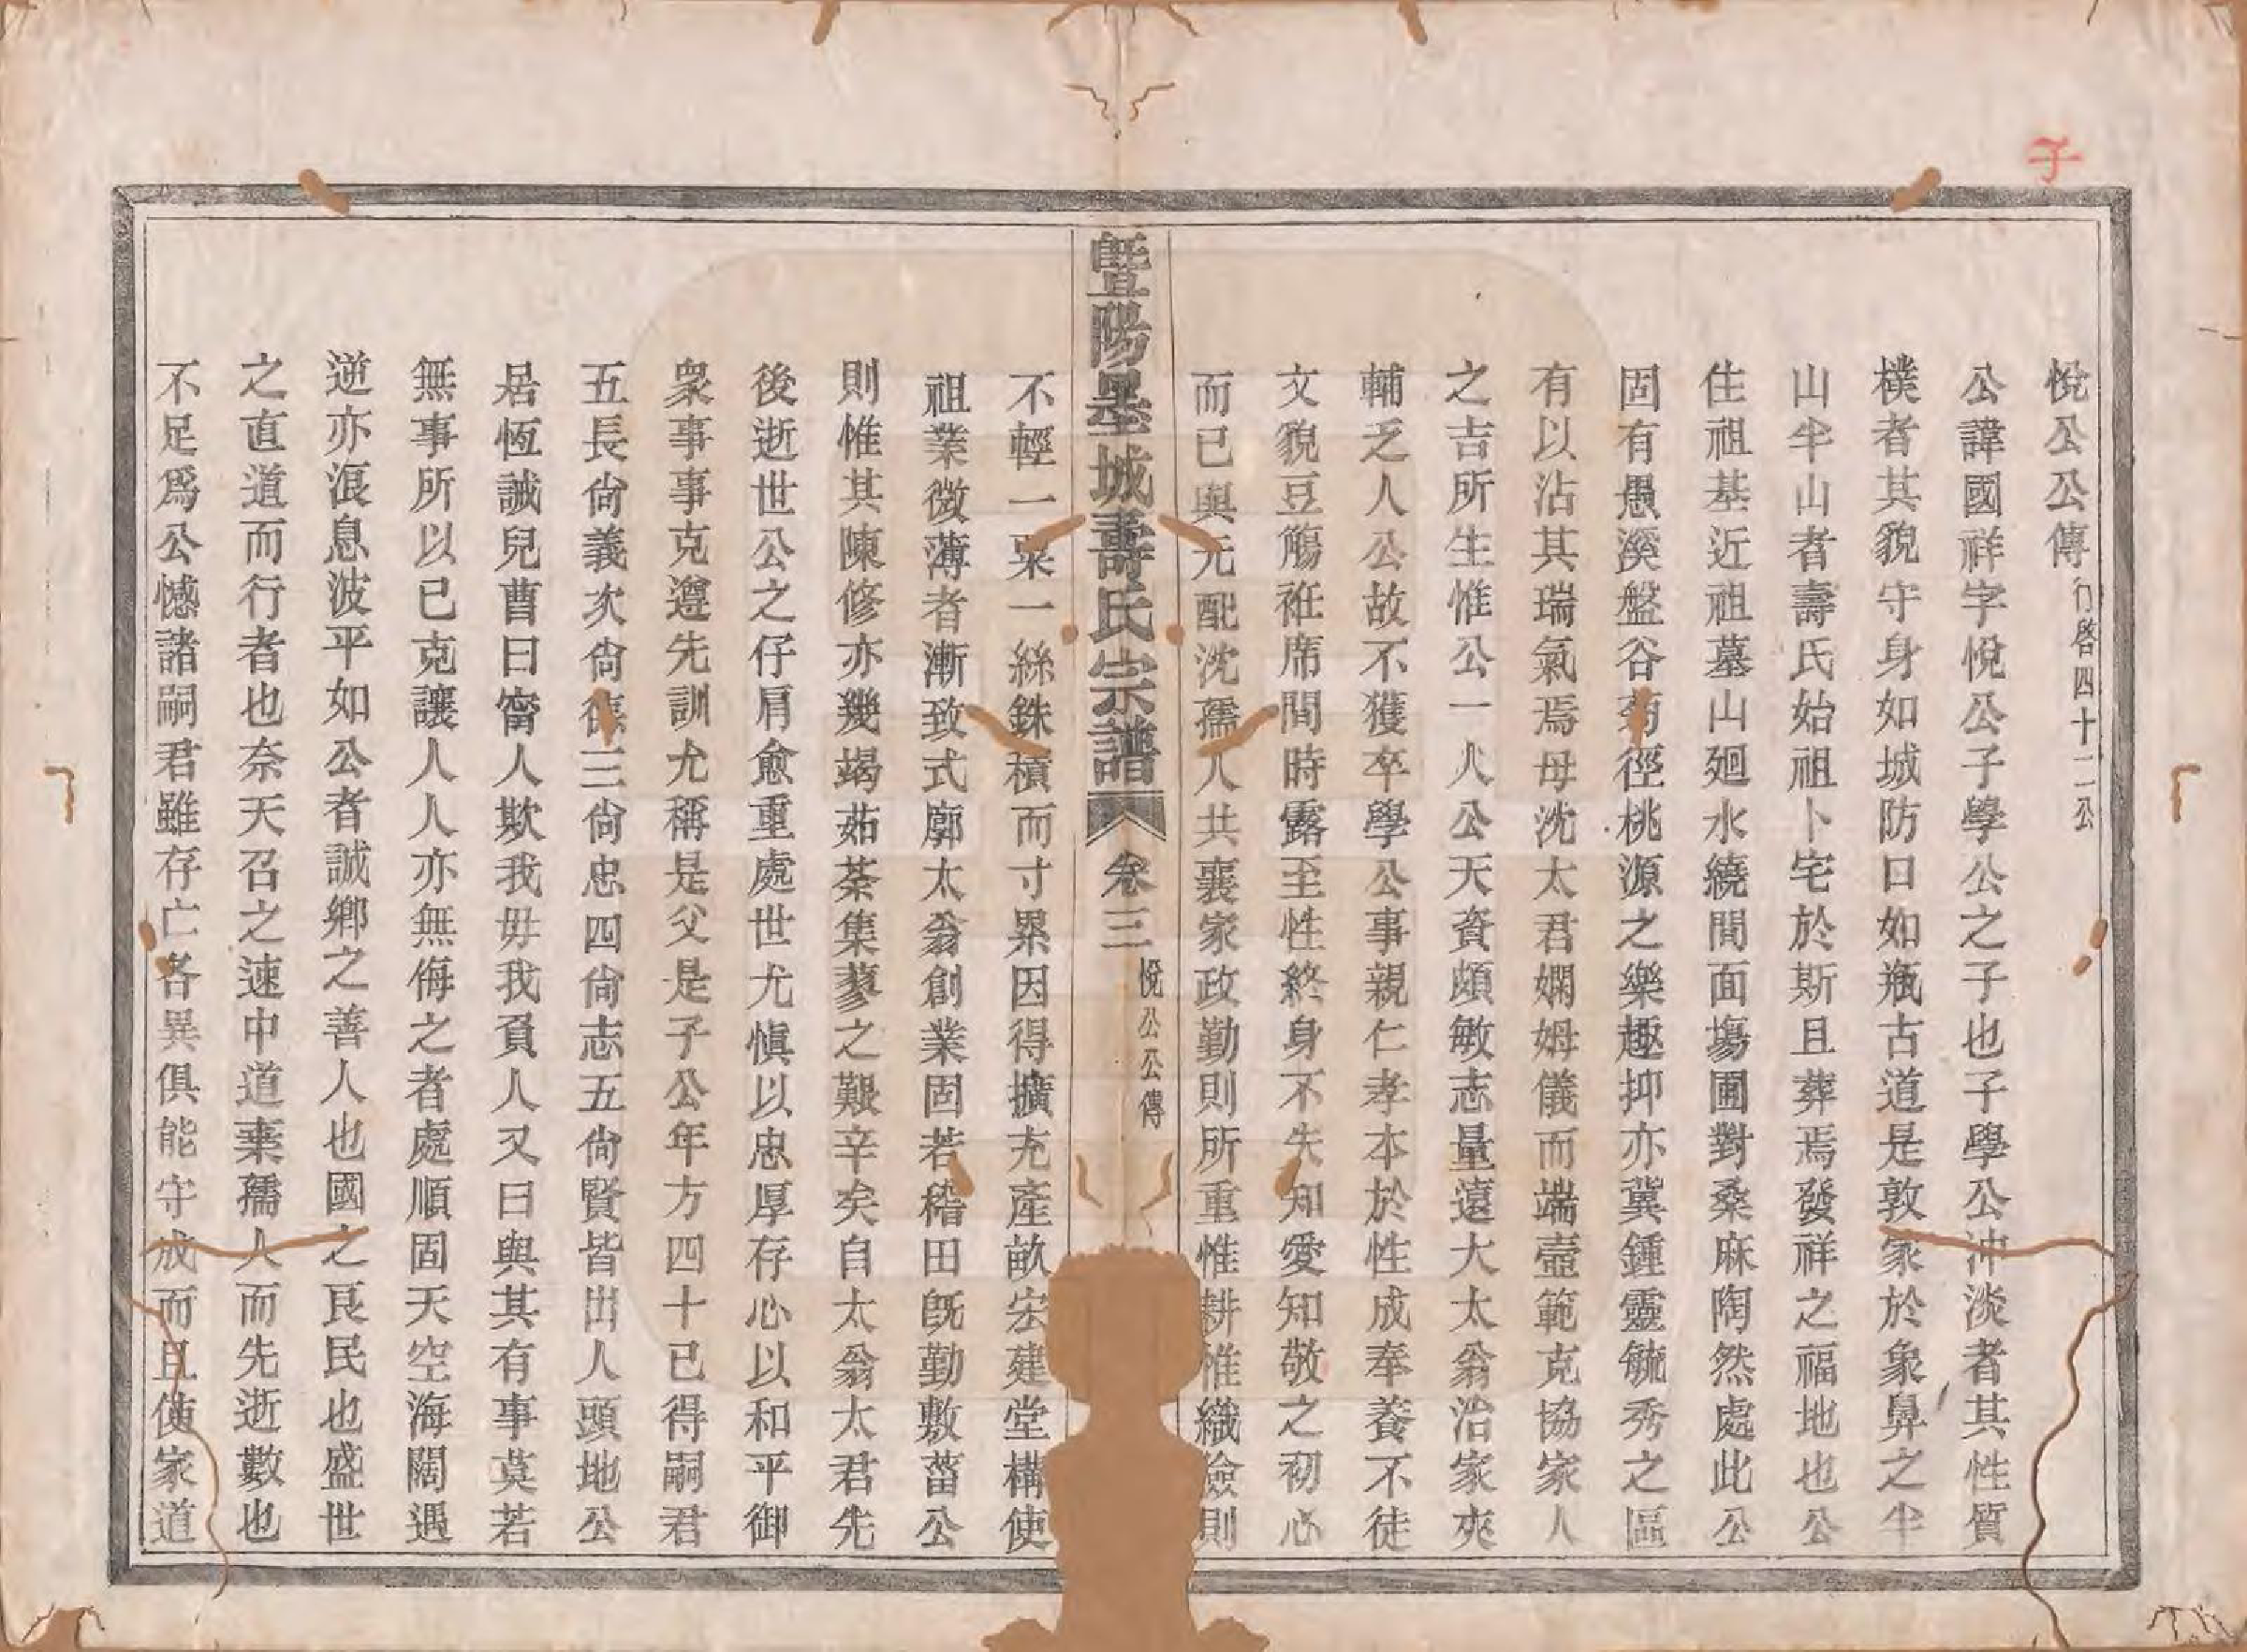 子
悅公公傳行啓四十二公
公諱國祥字悅公子學公之子也子學公沖淡者其性質
樸者其貌守身如城防口如瓶古道是敦家於象鼻之半
山半山者壽氏始祖卜宅於斯且葬焉發祥之福地也公
住祖基近祖墓山廻水繞間面塲圃對桑麻陶然處此公
固有愚溪盤谷菊徑桃源之樂趣抑亦冀鍾靈毓秀之區
有以沾其瑞氣焉母沈太君嫻姆儀而端壼範克協家人
之吉所生惟公一人公天資頗敏志量遠大太翁治家夾
輔乏人公故不獲卒學公事親仁孝本於性成奉養不徒
文貌豆觴袵席間時露至性終身不失知愛知敬之初心
而已與元配沈孺人共襄家政勤則所重惟耕惟織儉則
暨陽墨城壽氏宗譜
卷三
悅公公傳
不輕一粟一絲銖積而寸累因得擴充產畝宏建堂構使
祖業微薄者漸致式廓太翁創業固若稽田旣勤敷菑公
則惟其陳修亦幾竭茹荼集蓼之艱辛矣自太翁太君先
後逝世公之仔肩愈重處世尤愼以忠厚存心以和平御
衆事事克遵先訓尤稱是父是子公年方四十已得嗣君
五長尙義次尙德三尙忠四尙志五尙賢皆出人頭地公
居恆誡兒曹曰甯人欺我毋我負人又曰與其有事莫若
無事所以已克讓人人亦無侮之者處順固天空海闊遇
逆亦浪息波平如公者誠鄉之善人也國之良民也盛世
之直道而行者也奈天召之速中道棄孺人而先逝數也
不足爲公憾諸嗣君雖存亡各異俱能守成而且使家道